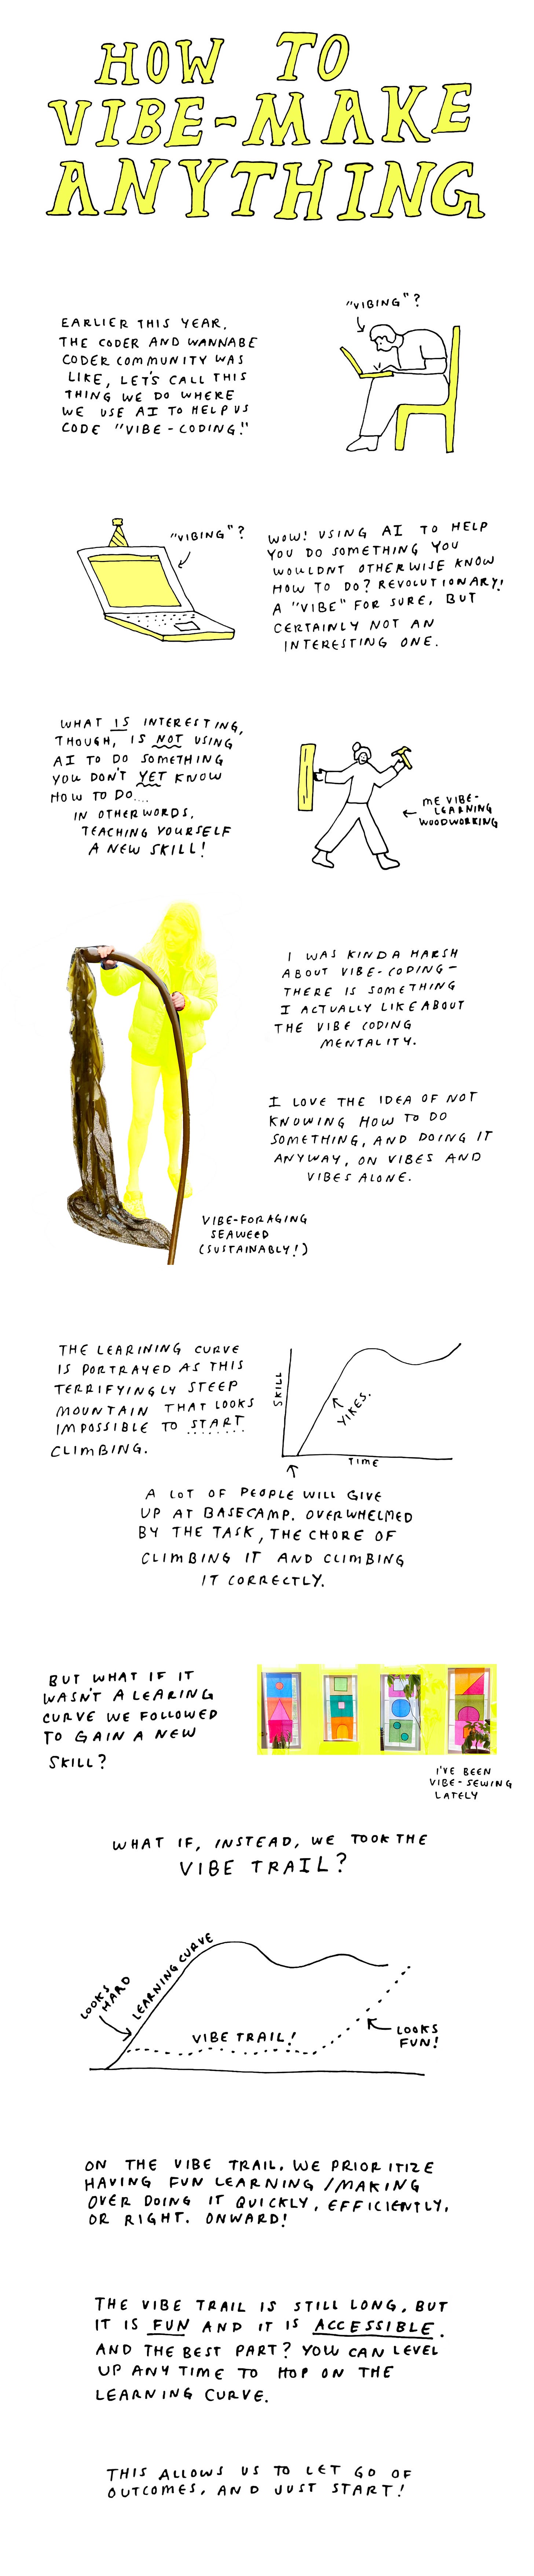 HOW TO
VIBE-MAKE
ANYTHING
"VIBING"?
EARLIER THIS YEAR,
THE CODER AND WANNABE
CODER COMMUNITY WAS
LIKE, LET'S CALL THIS
THING WE DO WHERE
WE USE AI TO HELP US
CODE "VIBE-CODING!"
"VIBING"?
WOW! USING AI TO HELP
YOU DO SOMETHING YOU
WOULDNT OTHERWISE KNOW
HOW TO DO? REVOLUTIONARY!
A "VIBE" FOR SURE, BUT
CERTAINLY NOT AN
INTERESTING ONE.
WHAT IS INTERESTING,
THOUGH, IS NOT USING
AI TO DO SOMETHING
YOU DON'T YET KNOW
HOW TO DO....
IN OTHER WORDS,
TEACHING YOURSELF
A NEW SKILL!
ME VIBE-
LEARNING
WOODWORKING
I WAS KINDA HARSH
ABOUT VIBE-CODING-
THERE IS SOMETHING
I ACTUALLY LIKE ABOUT
THE VIBE CODING
MENTALITY.
I LOVE THE IDEA OF NOT
KNOWING HOW TO DO
SOMETHING, AND DOING IT
ANYWAY, ON VIBES AND
VIBES ALONE.
VIBE-FORAGING
SEAWEED
(SUSTAINABLY!)
THE LEARINING CURVE
IS PORTRAYED AS THIS
TERRIFYINGLY STEEP
MOUNTAIN THAT LOOKS
IMPOSSIBLE TO START
CLIMBING.
SKILL
YIKES.
TIME
A LOT OF PEOPLE WILL GIVE
UP AT BASECAMP. OVERWHELMED
BY THE TASK, THE CHORE OF
CLIMBING IT AND CLIMBING
IT CORRECTLY.
BUT WHAT IF IT
WASN'T A LEARING
CURVE WE FOLLOWED
TO GAIN A NEW
SKILL?
I'VE BEEN
VIBE-SEWING
LATELY
WHAT IF, INSTEAD, WE TOOK THE
VIBE TRAIL?
LOOKS
HARD
LEARNING CURVE
VIBE TRAIL!
LOOKS
FUN!
ON THE VIBE TRAIL, WE PRIORITIZE
HAVING FUN LEARNING/MAKING
OVER DOING IT QUICKLY, EFFICIENTLY,
OR RIGHT. ONWARD!
THE VIBE TRAIL IS STILL LONG, BUT
IT IS FUN AND IT IS ACCESSIBLE.
AND THE BEST PART? YOU CAN LEVEL
UP ANY TIME TO HOP ON THE
LEARNING CURVE.
THIS ALLOWS US TO LET GO OF
OUTCOMES, AND JUST START!